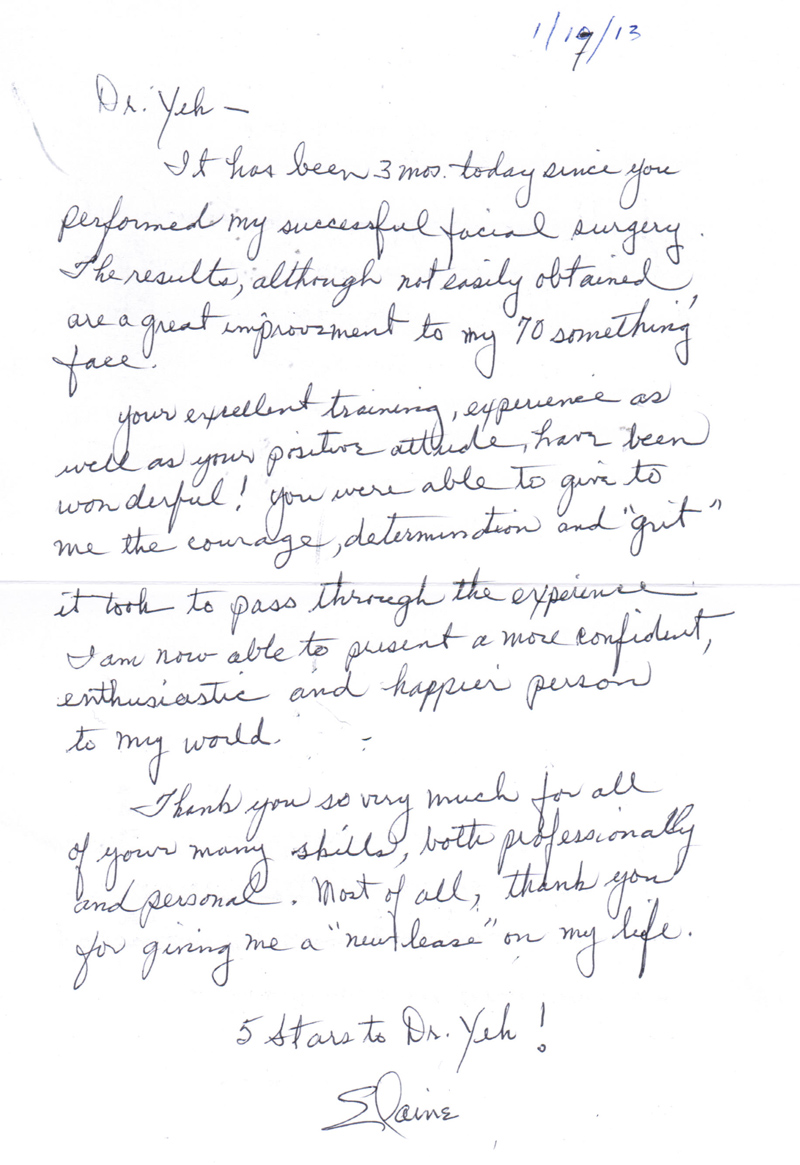 1/17/13
Dr. Yeh —
It has been 3 mos. today since you
performed my successful facial surgery.
The results, although not easily obtained,
are a great improvement to my 70 something
face.
your excellent training, experience as
well as your positive attitude, have been
wonderful! you were able to give to
me the courage, determination and "grit"
it took to pass through the experience.
I am now able to present a more confident,
enthusiastic and happier person
to my world.
Thank you so very much for all
of your many skills, both professionally
and personal. Most of all, thank you
for giving me a "new lease" on my life.
5 Stars to Dr. Yeh!
Elaine